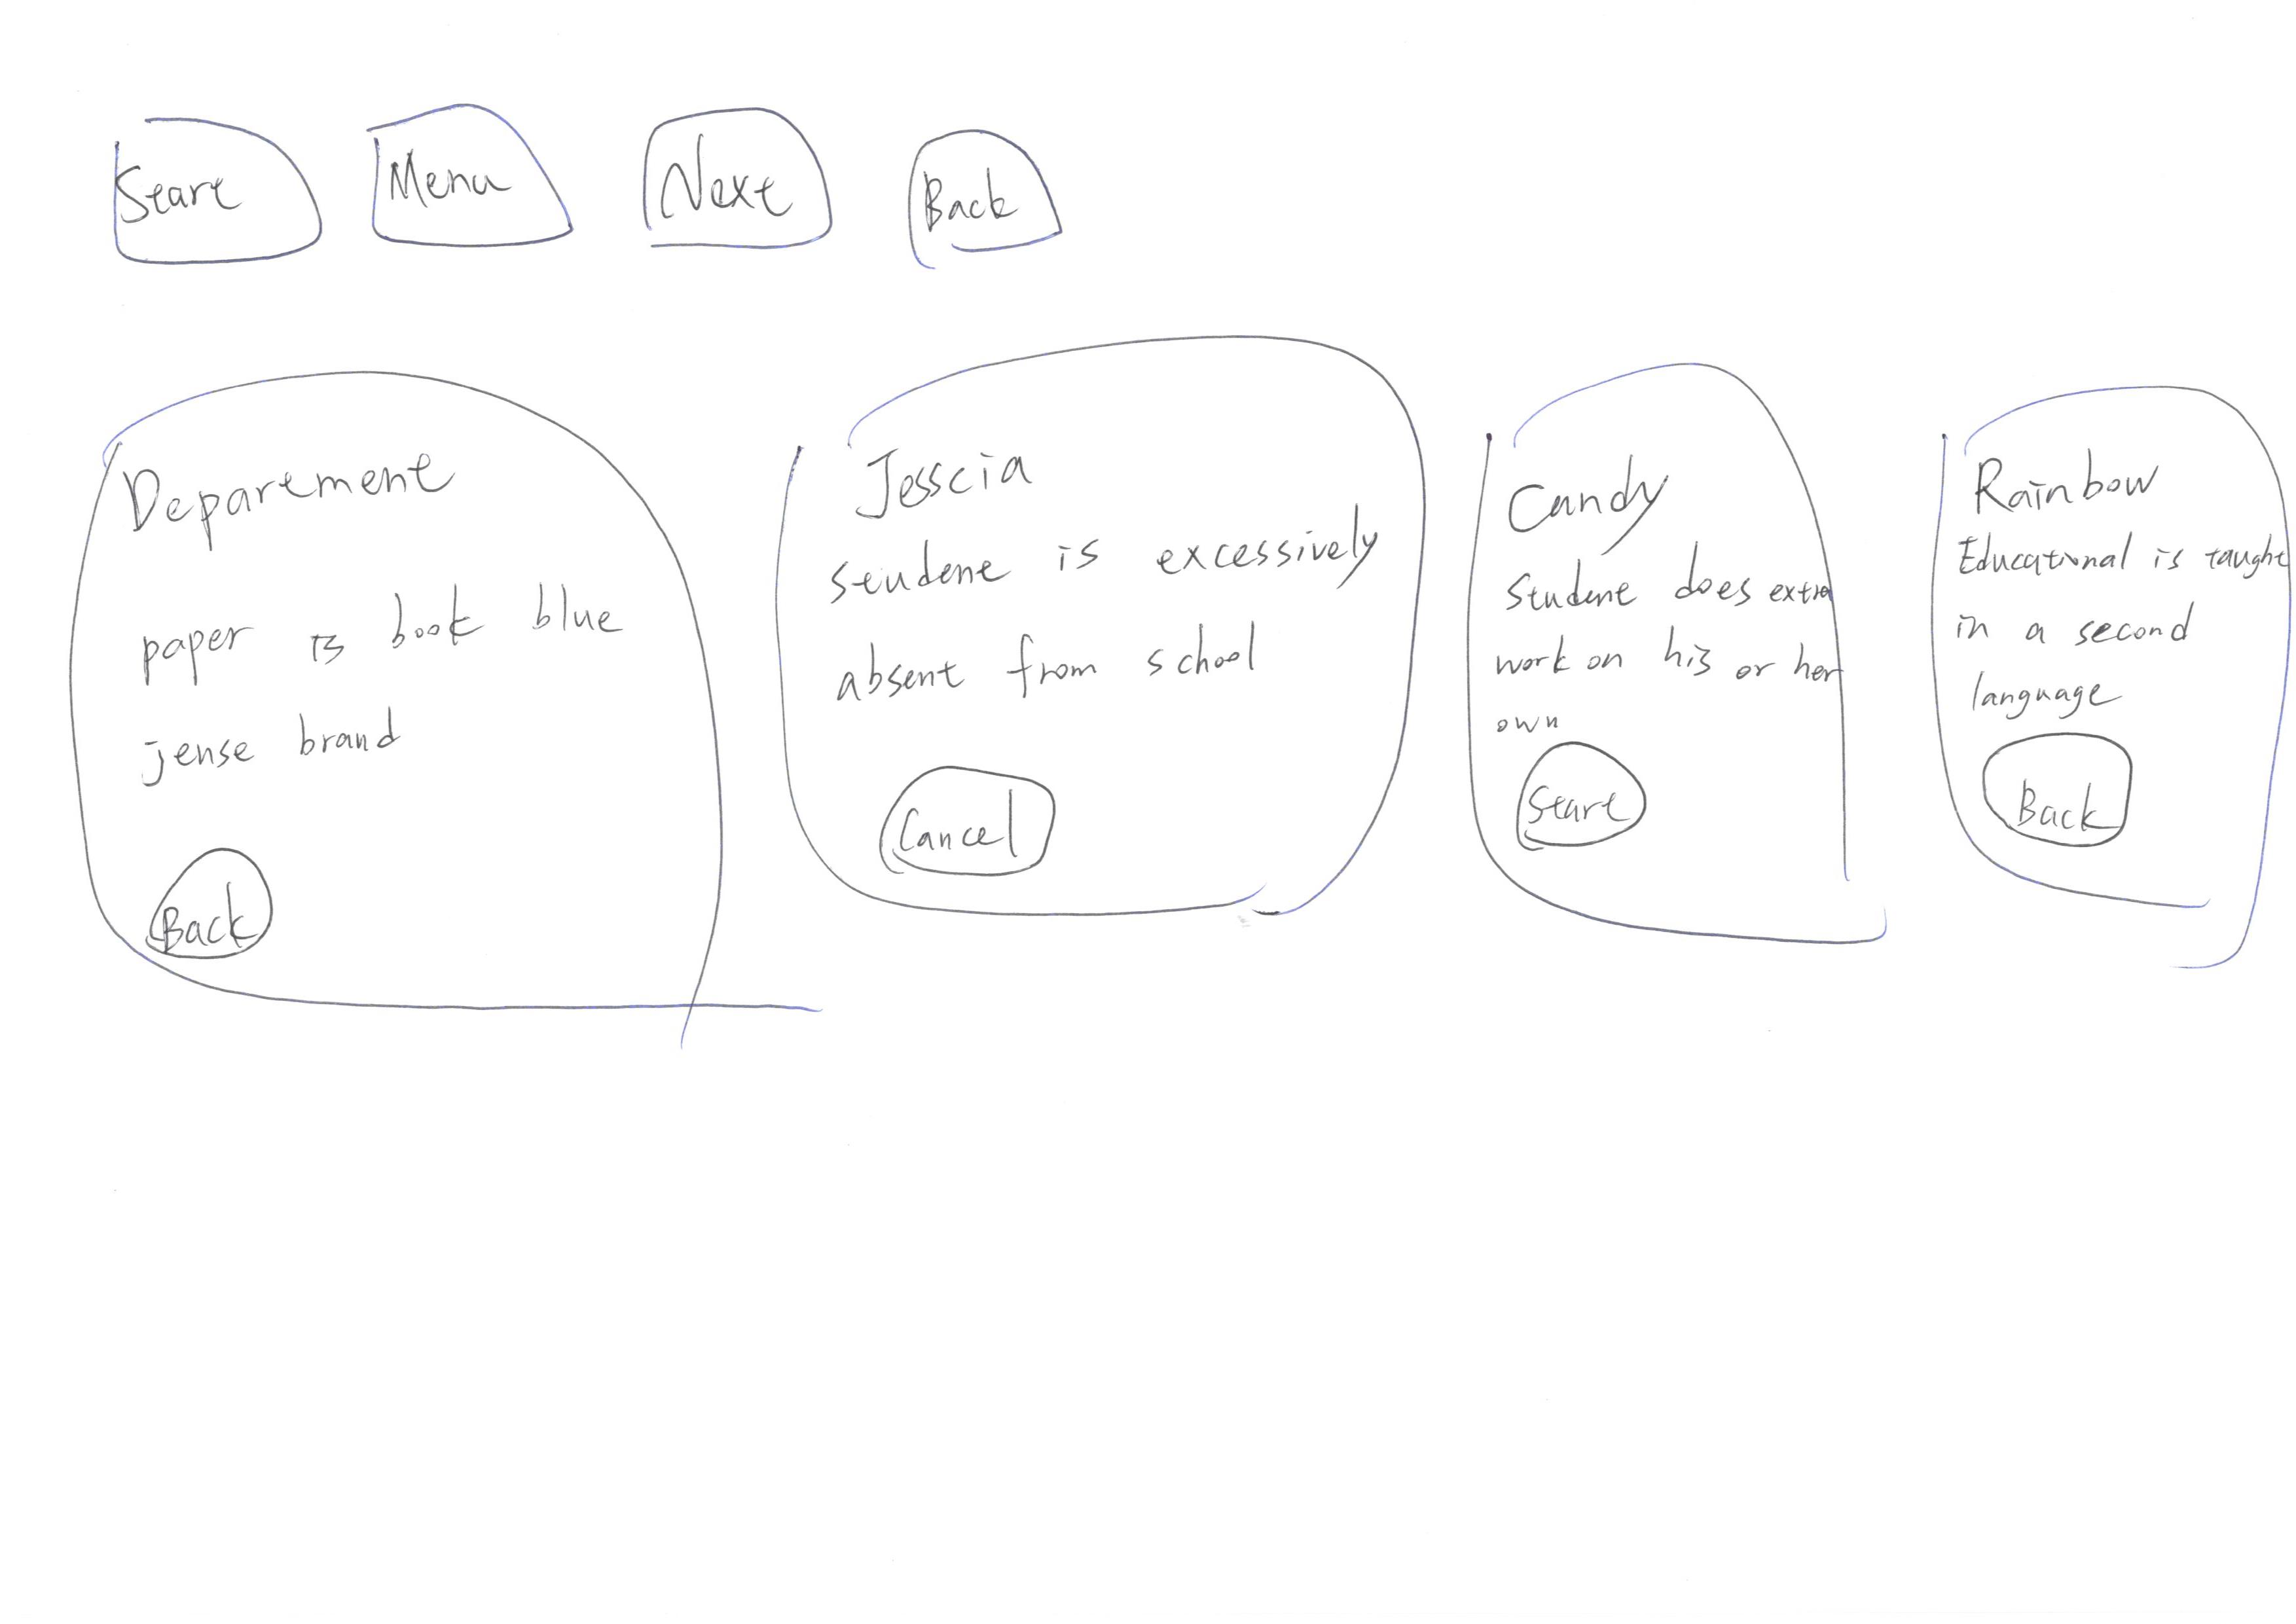 Start
Menu
Next
Back
Department
paper is book blue
jense brand
Back
Jesscia
student is excessively
absent from school
Cancel
Candy
Student does extra
work on his or her
own
Start
Rainbow
Educational is taught
in a second
language
Back